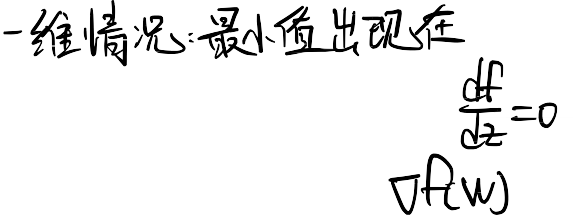 一维情况:最小值出现在
df/dz=0
∇f(w)